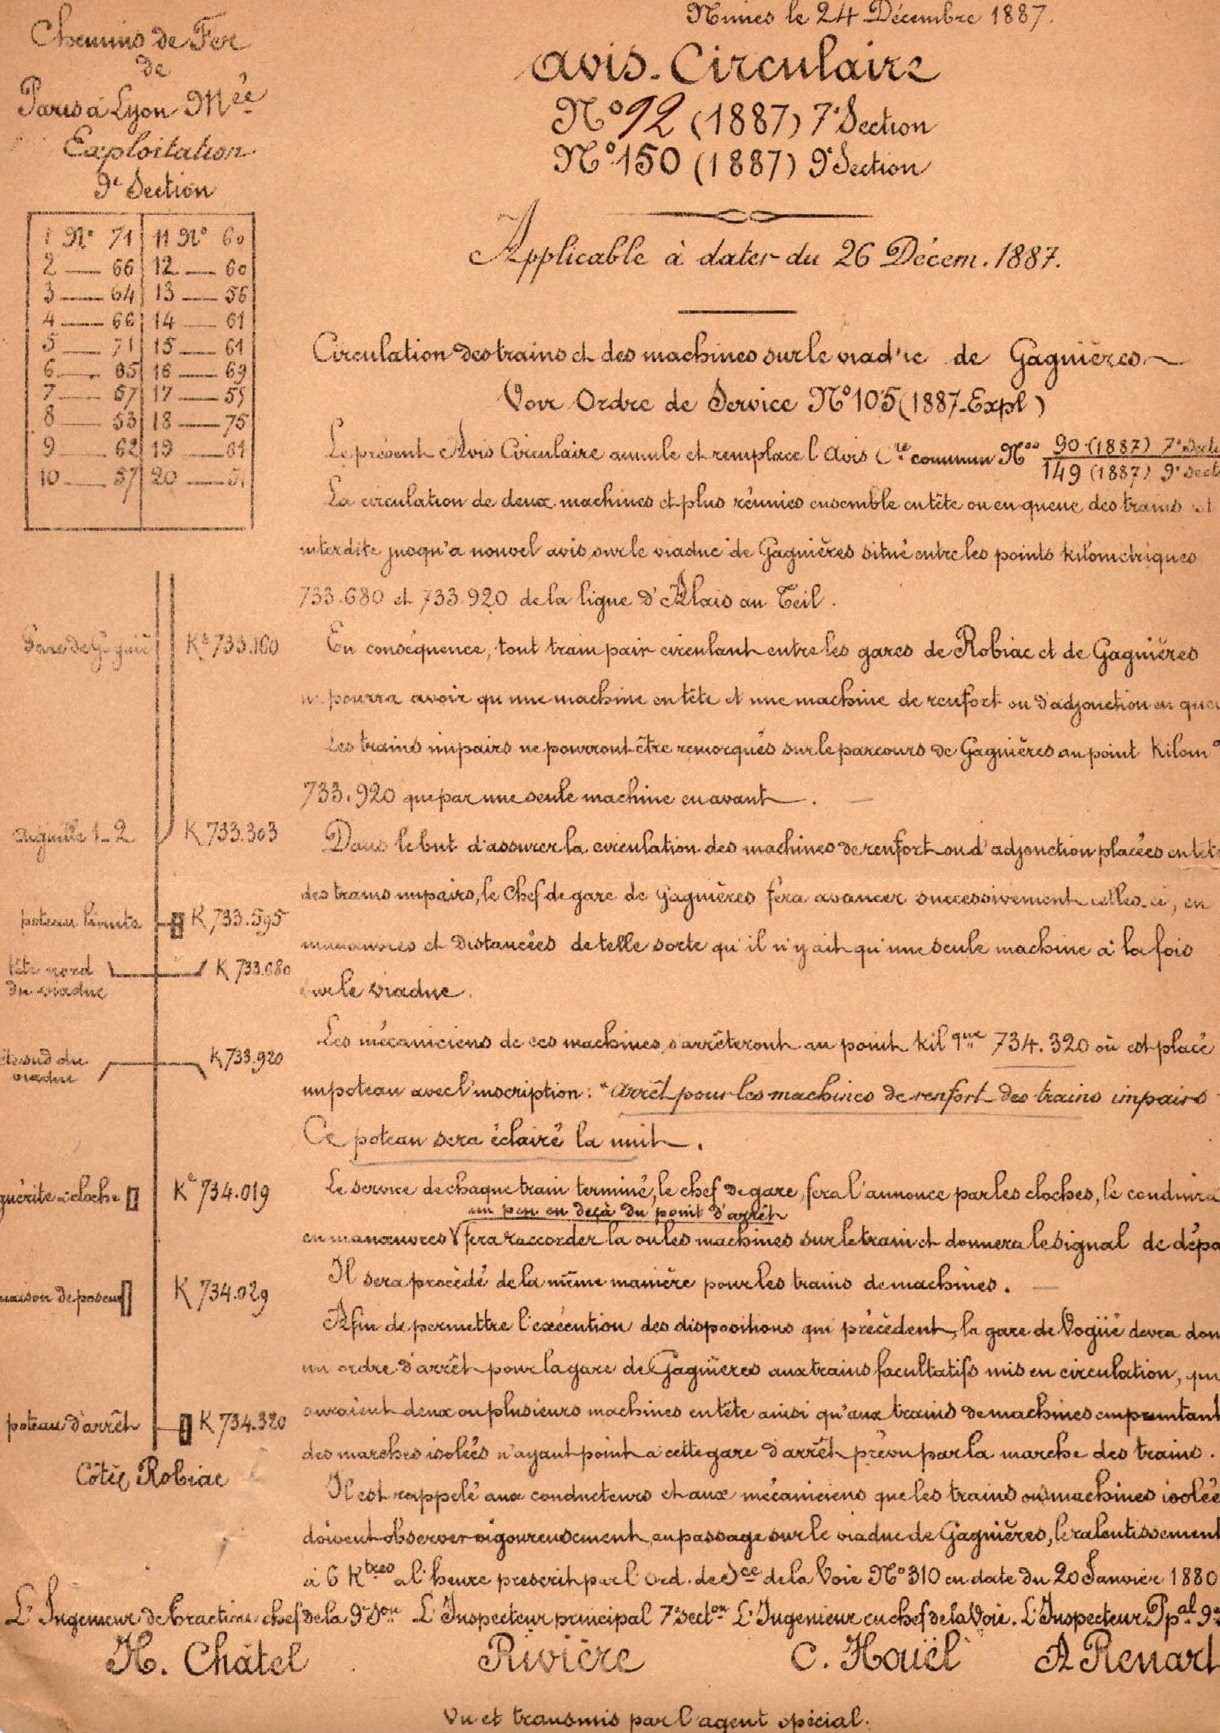 Nîmes le 24 Décembre 1887.
Chemins de Fer
de
Paris à Lyon Mée
Exploitation
9e Section
Avis-Circulaire
No 92 (1887) 7e Section
No 150 (1887) 9e Section
Applicable à dater du 26 Décem. 1887.
1 No 71 11 No 60
2 — 66 12 — 60
3 — 64 13 — 56
4 — 66 14 — 61
5 — 71 15 — 61
6 — 65 16 — 69
7 — 57 17 — 55
8 — 53 18 — 75
9 — 62 19 — 61
10 — 57 20 — 51
Circulation des trains et des machines sur le viaduc de Gagnières
Voir Ordre de Service No 105 (1887-Expl)
Le présent Avis Circulaire annule et remplace l'Avis Cre commun Nos 90 (1887) 7e Sect
149 (1887) 9e Sect
La circulation de deux machines et plus réunies ensemble en tête ou en queue des trains est
interdite jusqu'a nouvel avis sur le viaduc de Gagnières situé entre les points kilométriques
733.680 et 733.920 de la ligne d'Alais au Teil.
En conséquence, tout train pair circulant entre les gares de Robiac et de Gagnières
ne pourra avoir qu'une machine en tête et une machine de renfort ou d'adjonction en queu
Les trains impairs ne pourront être remorqués sur le parcours de Gagnières au point kilome
733.920 que par une seule machine en avant.
Dans le but d'assurer la circulation des machines de renfort ou d'adjonction placées en tête
des trains impairs, le Chef de gare de Gagnières fera avancer successivement celles-ci, en
manœuvres et distancées de telle sorte qu'il n'y ait qu'une seule machine à la fois
sur le viaduc.
Les mécaniciens de ces machines, s'arrêteront au point kilque 734.320 où est placé
un poteau avec l'inscription: "Arrêt pour les machines de renfort des trains impairs
Ce poteau sera éclairé la nuit.
Le service de chaque train terminé, le chef de gare, fera l'annonce par les cloches, le conduira
un peu en deçà du point d'arrêt
en manœuvres V fera raccorder la ou les machines sur le train et donnera le signal de dépa
Il sera procédé de la même manière pour les trains de machines.
Afin de permettre l'exécution des dispositions qui précédent, la gare de Vogüé devra don
un ordre d'arrêt pour la gare de Gagnières aux trains facultatifs mis en circulation, qui
auraient deux ou plusieurs machines en tête ainsi qu'aux trains de machines empruntant
des marches isolées n'ayant point à cette gare d'arrêt prévu par la marche des trains.
Il est rappelé aux conducteurs et aux mécaniciens que les trains ou machines isolée
doivent observer rigoureusement, au passage sur le viaduc de Gagnières, le ralentissement
à 6 Ktres à l'heure prescrit par l'Ord. de Sce de la Voie No 310 en date du 20 Janvier 1880
Gare de Gagniè K 733.160
Aiguille 1-2 K 733.303
poteau limite K 733.595
tête nord K 733.680
du viaduc
tête sud du K 733.920
viaduc
guérite à cloche K 734.019
maison de poseur K 734.029
poteau d'arrêt K 734.320
Côté Robiac
L'Ingénieur de traction, chef de la 9e Son L'Inspecteur principal 7e Section L'Ingénieur en chef de la Voie. L'Inspecteur Ppal 9e
H. Châtel Rivière C. Houël A Renart
Vu et transmis par l'agent spécial.